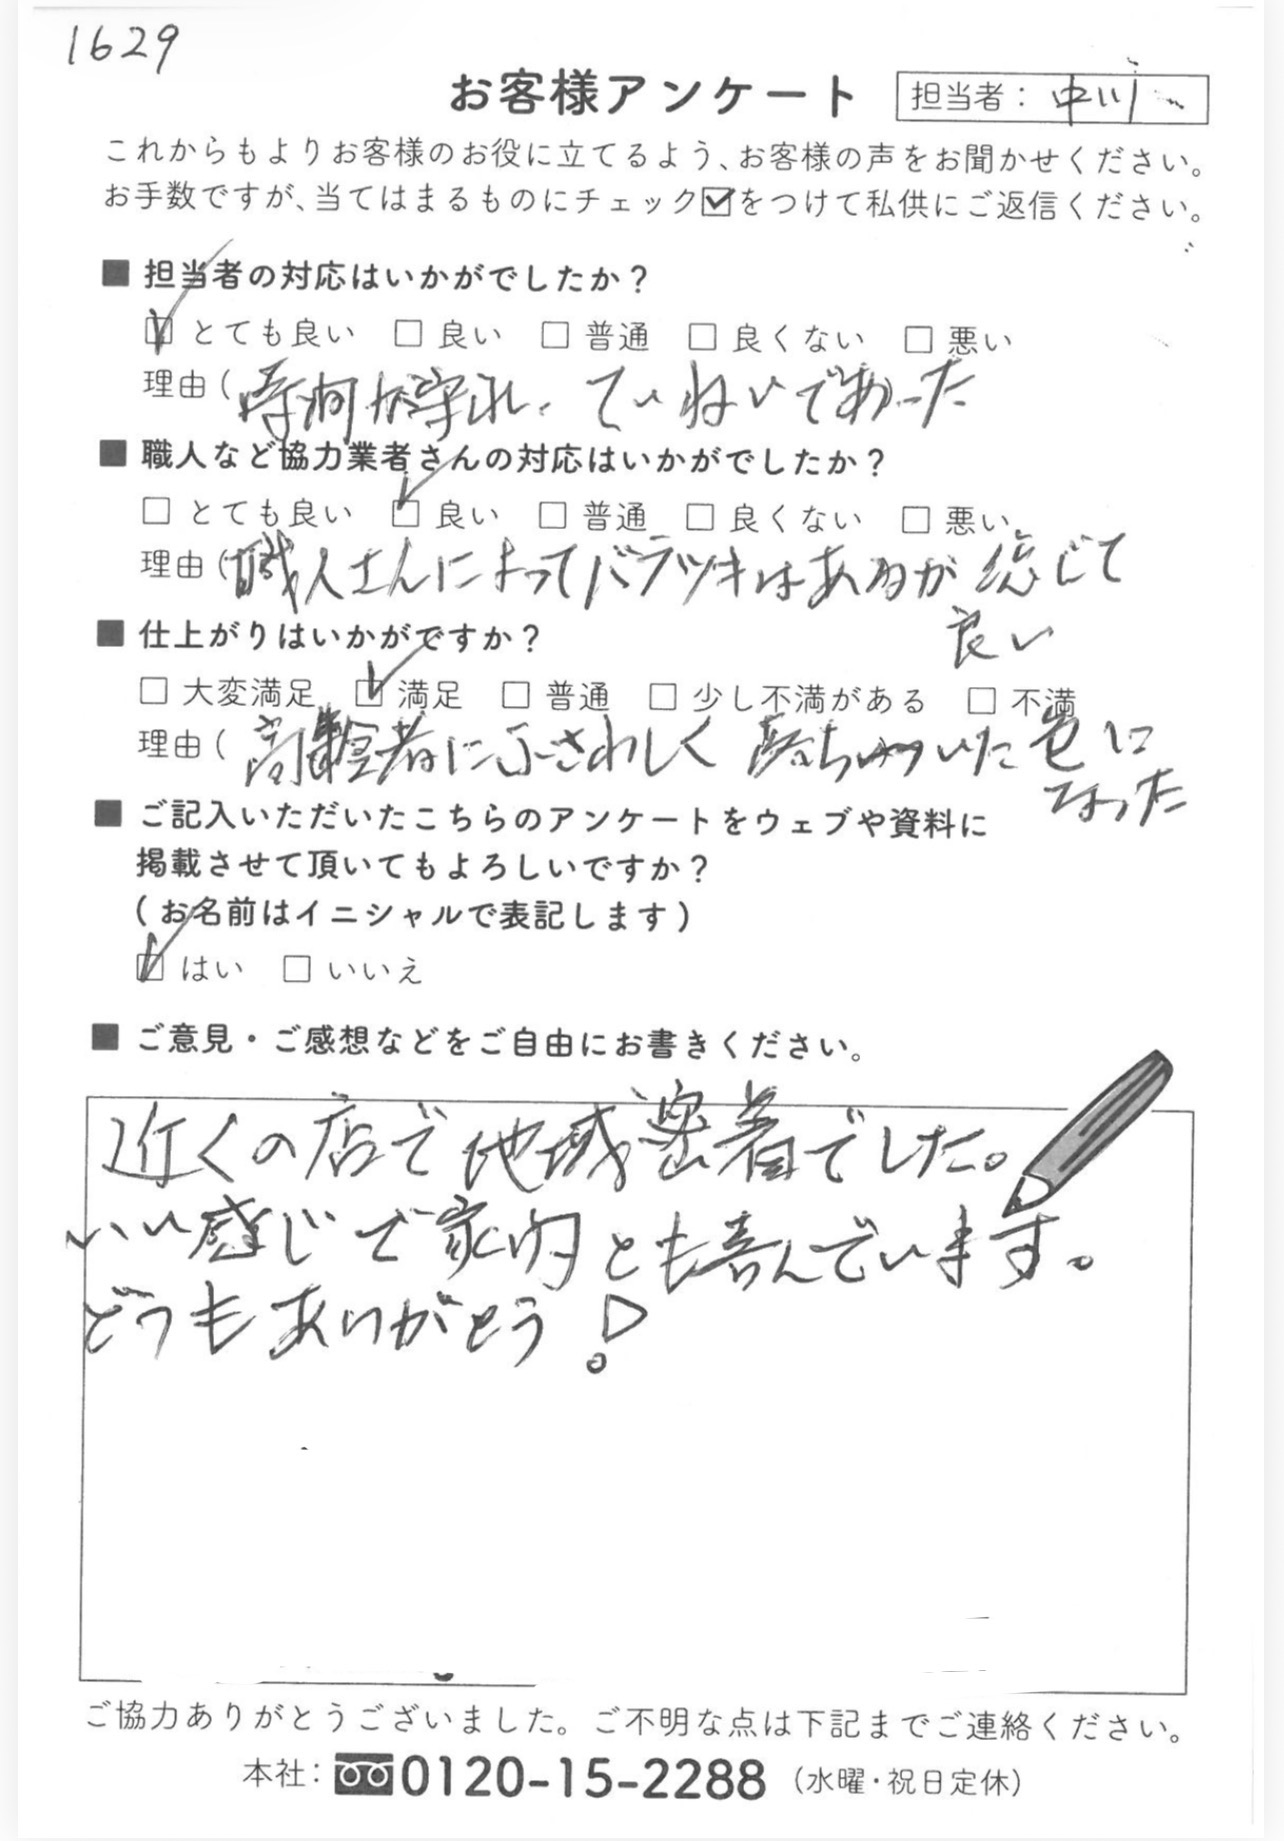 1629
お客様アンケート
担当者: 中川
これからもよりお客様のお役に立てるよう、お客様の声をお聞かせください。
お手数ですが、当てはまるものにチェック☑をつけて私供にご返信ください。
■ 担当者の対応はいかがでしたか？
☑ とても良い □ 良い □ 普通 □ 良くない □ 悪い
理由( 時間が守れ、ていねいであった
■ 職人など協力業者さんの対応はいかがでしたか？
□ とても良い ☑ 良い □ 普通 □ 良くない □ 悪い
理由( 職人さんによってバラツキはあるが 総じて
良い
■ 仕上がりはいかがですか？
□ 大変満足 ☑ 満足 □ 普通 □ 少し不満がある □ 不満
理由( 高齢者にふさわしく 落ちついた色に
なった
■ ご記入いただいたこちらのアンケートをウェブや資料に
掲載させて頂いてもよろしいですか？
(お名前はイニシャルで表記します)
☑ はい □ いいえ
■ ご意見・ご感想などをご自由にお書きください。
近くの店で地域密着でした。
いい感じで家内とも喜んでいます。
どうもありがとう！
ご協力ありがとうございました。ご不明な点は下記までご連絡ください。
本社: 0120-15-2288 (水曜・祝日定休)